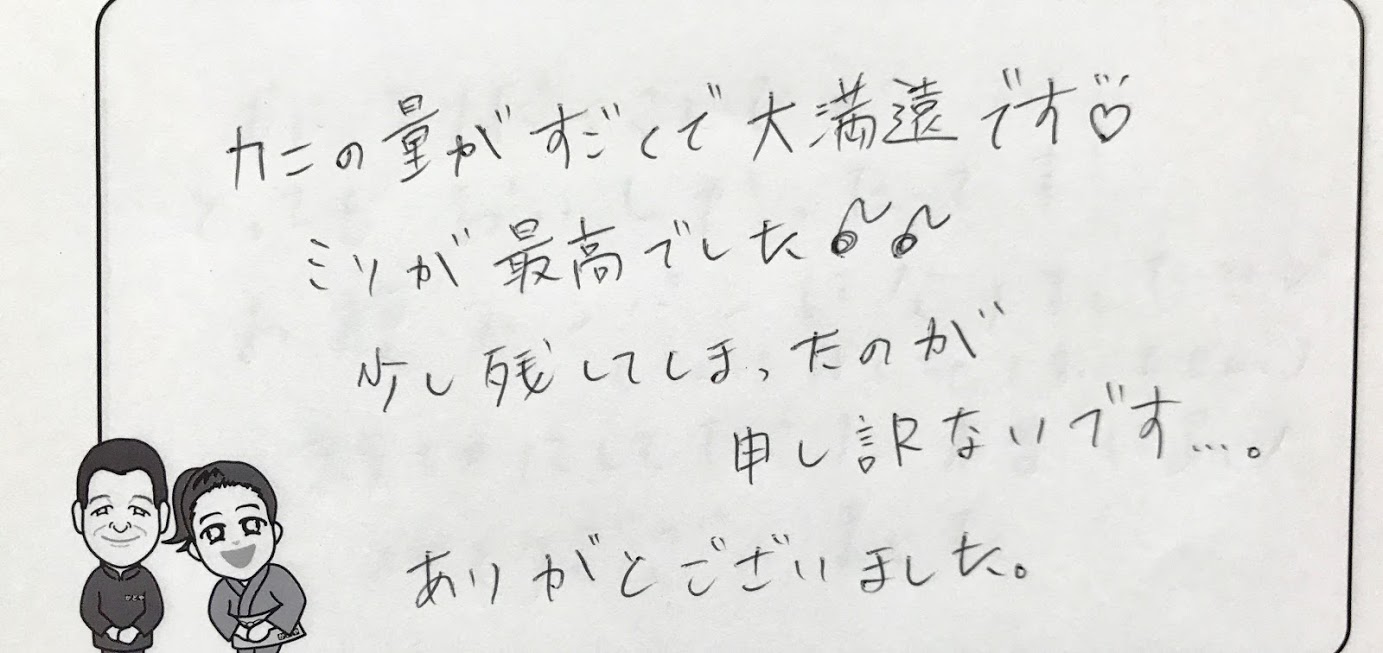 カニの量がすごくで大満遠です♡
ミソが最高でした♪♪
少し残してしまったのが
申し訳ないです…。
ありがとございました。
かどや